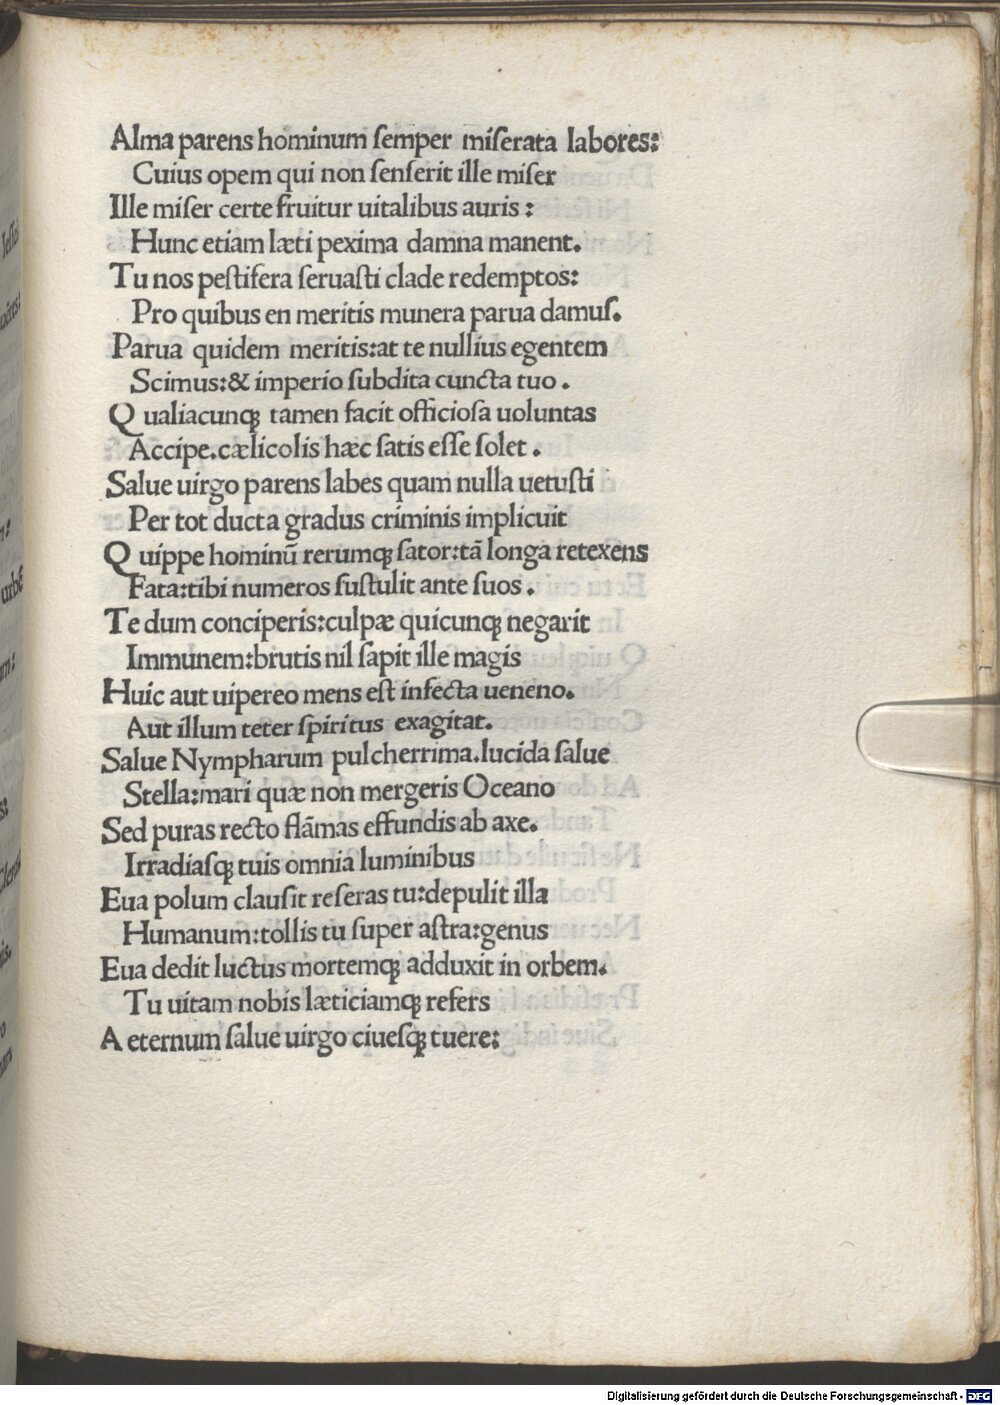 Alma parens hominum ſemper miſerata labores:
Cuius opem qui non ſenſerit ille miſer
Ille miſer certe fruitur uitalibus auris :
Hunc etiam læti pexima damna manent.
Tu nos peſtifera ſeruaſti clade redemptos:
Pro quibus en meritis munera parua damuſ.
Parua quidem meritis:at te nullius egentem
Scimus:& imperio ſubdita cuncta tuo .
Q ualiacunqꝫ tamen facit officioſa uoluntas
Accipe.cælicolis hæc ſatis eſſe ſolet .
Salue uirgo parens labes quam nulla uetuſti
Per tot ducta gradus criminis implicuit
Q uippe hominū rerumqꝫ ſator:tā longa retexens
Fata:tibi numeros ſuſtulit ante ſuos .
Te dum conciperis:culpæ quicunqꝫ negarit
Immunem:brutis nil ſapit ille magis
Huic aut uipereo mens eſt infecta ueneno.
Aut illum teter ſpiritus exagitat.
Salue Nympharum pulcherrima.lucida ſalue
Stella:mari quæ non mergeris Oceano
Sed puras recto flāmas effundis ab axe.
Irradiaſqꝫ tuis omnia luminibus
Eua polum clauſit reſeras tu:depulit illa
Humanum:tollis tu ſuper aſtra:genus
Eua dedit luctus mortemqꝫ adduxit in orbem.
Tu uitam nobis læticiamqꝫ refers
A eternum ſalue uirgo ciueſqꝫ tuere:
Digitalisierung gefördert durch die Deutsche Forschungsgemeinschaft - DFG